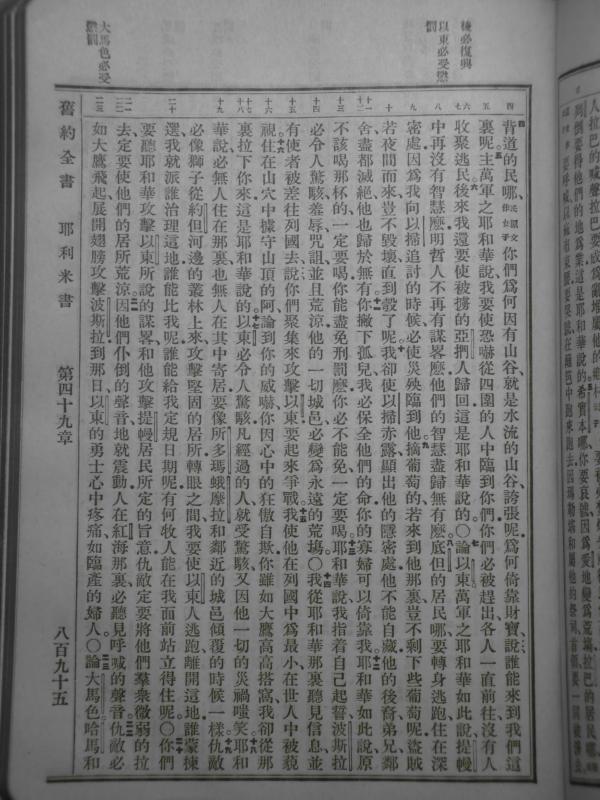 後必復興
以東必受懲罰
大馬色必受懲罰
背道的民哪、你們爲何因有山谷就是水流的山谷誇張呢爲何倚靠財寶說誰能來到我們這
裏呢主萬軍之耶和華說我要使恐嚇從四圍的人中臨到你們你們必被趕出各人一直前往沒有人
收聚逃民後來我還要使被擄的亞捫人歸回這是耶和華說的〇論以東萬軍之耶和華如此說提幔
中再沒有智慧麼明哲人不再有謀畧麼他們的智慧盡歸無有麼底但的居民哪要轉身逃跑住在深
密處因爲我向以掃追討的時候必使災殃臨到他摘葡萄的若來到他那裏豈不剩下些葡萄呢盜賊
若夜間而來豈不毀壞直到彀了呢我卻使以掃赤露顯出他的隱密處他不能自藏他的後裔弟兄鄰
舍盡都滅絕他也歸於無有你撇下孤兒我必保全他們的命你的寡婦可以倚靠我耶和華如此說原
不該喝那杯的一定要喝你能盡免刑罰麼你必不能免一定要喝耶和華說我指着自己起誓波斯拉
必令人驚駭羞辱咒詛並且荒涼他的一切城邑必變爲永遠的荒場〇我從耶和華那裏聽見信息並
有使者被差往列國去說你們聚集來攻擊以東要起來爭戰我使他在列國中爲最小在世人中被藐
視住在山穴中據守山頂的阿論到你的威嚇你因心中的狂傲自欺你雖如大鷹高高搭窩我卻從那
裏拉下你來這是耶和華說的以東必令人驚駭凡經過的人就受驚駭又因他一切的災禍嗤笑耶和
華說必無人住在那裏也無人在其中寄居要像所多瑪蛾摩拉和鄰近的城邑傾覆的時候一樣仇敵
必像獅子從約但河邊的叢林上來攻擊堅固的居所轉眼之間我要使以東人逃跑離開這地誰蒙揀
選我就派誰治理這地誰能比我呢誰能給我定規日期呢有何牧人能在我面前站立得住呢〇你們
要聽耶和華攻擊以東所說的謀畧和他攻擊提幔居民所定的旨意仇敵定要將他們羣衆微弱的拉
去定要使他們的居所荒涼因他們仆倒的聲音地就震動人在紅海那裏必聽見呼喊的聲音仇敵必
如大鷹飛起展開翅膀攻擊波斯拉到那日以東的勇士心中疼痛如臨產的婦人〇論大馬色哈馬和
舊約全書 耶利米書 第四十九章 八百九十五